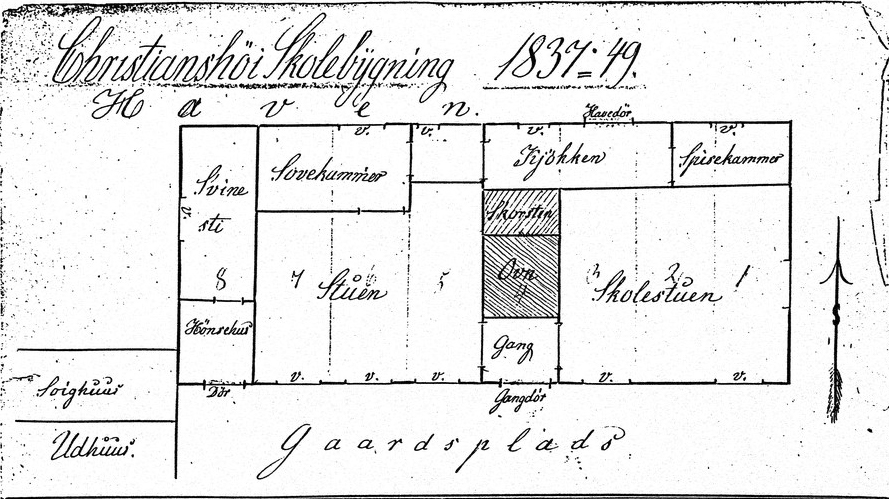 Christianshöi Skolebÿgning 1837=49.
Haven.
Havedör
v. v. v. v.
Svine
sti
Sovekammer
Kjökken
Spisekammer
Skorsten
v.
8 7 6 5
Stuen
Ovn
4
3 2 1
Skolestuen
Hönsehus
Gang
S
v. v. v. v. v.
Dör
Gangdör
Udhuus.
Gaardsplads